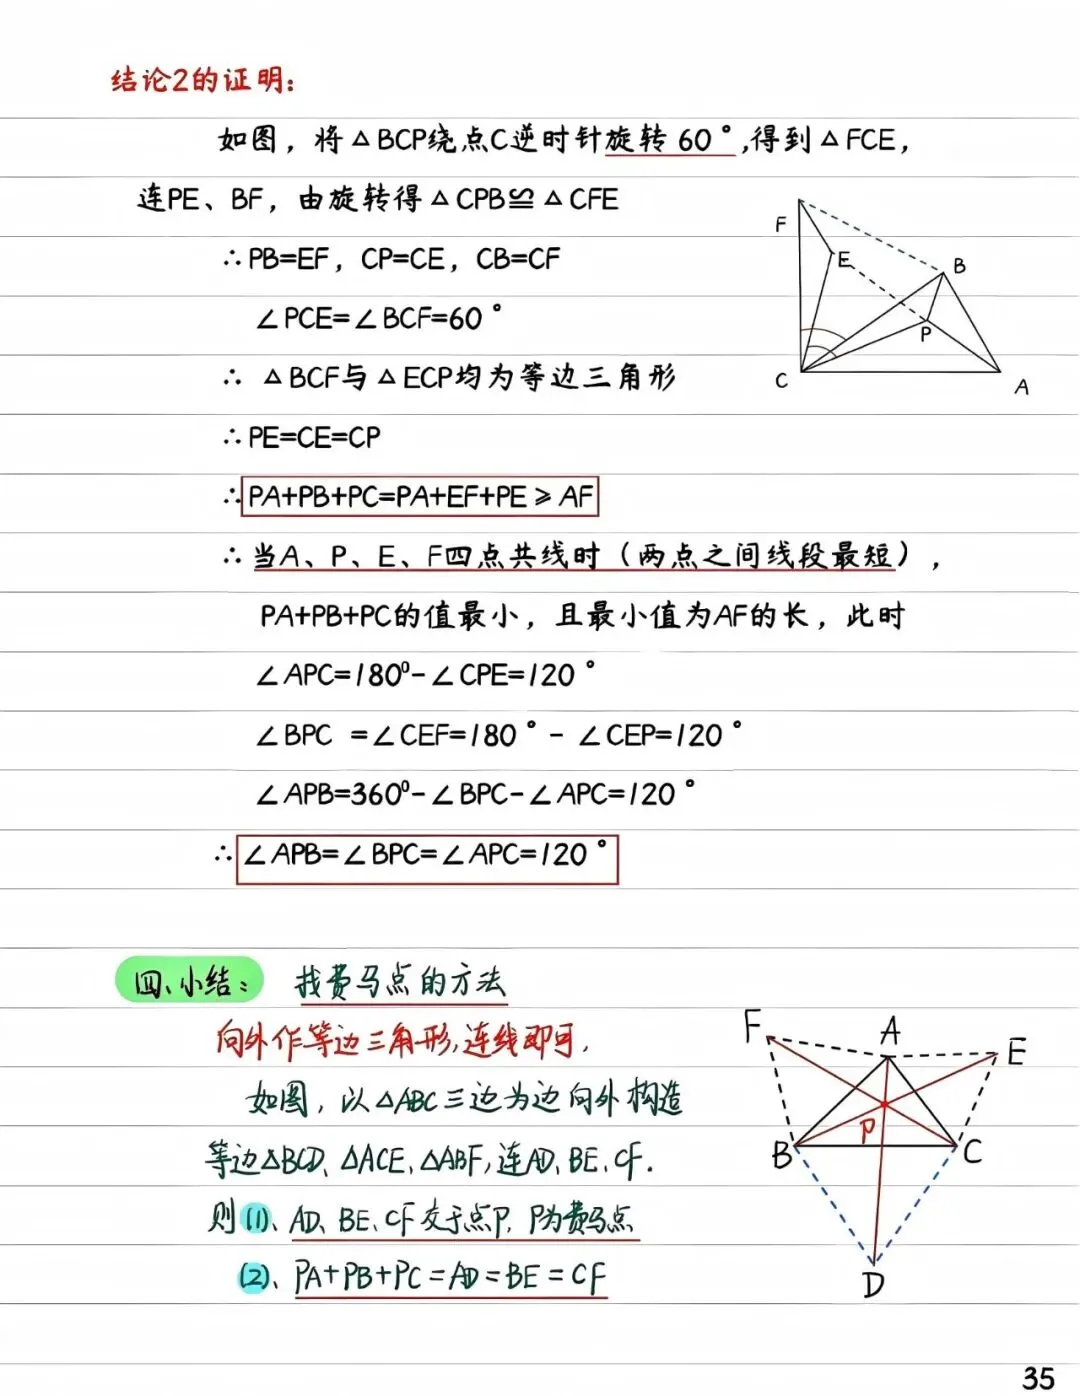 结论2的证明:
如图，将△BCP绕点C逆时针旋转60°,得到△FCE，
连PE、BF，由旋转得△CPB≌△CFE
∴PB=EF，CP=CE，CB=CF
∠PCE=∠BCF=60°
∴ △BCF与△ECP均为等边三角形
∴PE=CE=CP
∴PA+PB+PC=PA+EF+PE≥AF
∴当A、P、E、F四点共线时（两点之间线段最短），
PA+PB+PC的值最小，且最小值为AF的长，此时
∠APC=180⁰-∠CPE=120°
∠BPC =∠CEF=180°- ∠CEP=120°
∠APB=360⁰-∠BPC-∠APC=120°
∴∠APB=∠BPC=∠APC=120°
F
E
B
P
C
A
四、小结: 找费马点的方法
向外作等边三角形,连线即可.
如图，以△ABC三边为边向外构造
等边△BCD、△ACE、△ABF,连AD、BE、CF.
则(1)、AD、BE、CF交于点P, P为费马点
(2)、PA+PB+PC=AD=BE=CF
F
A
E
P
B
C
D
35